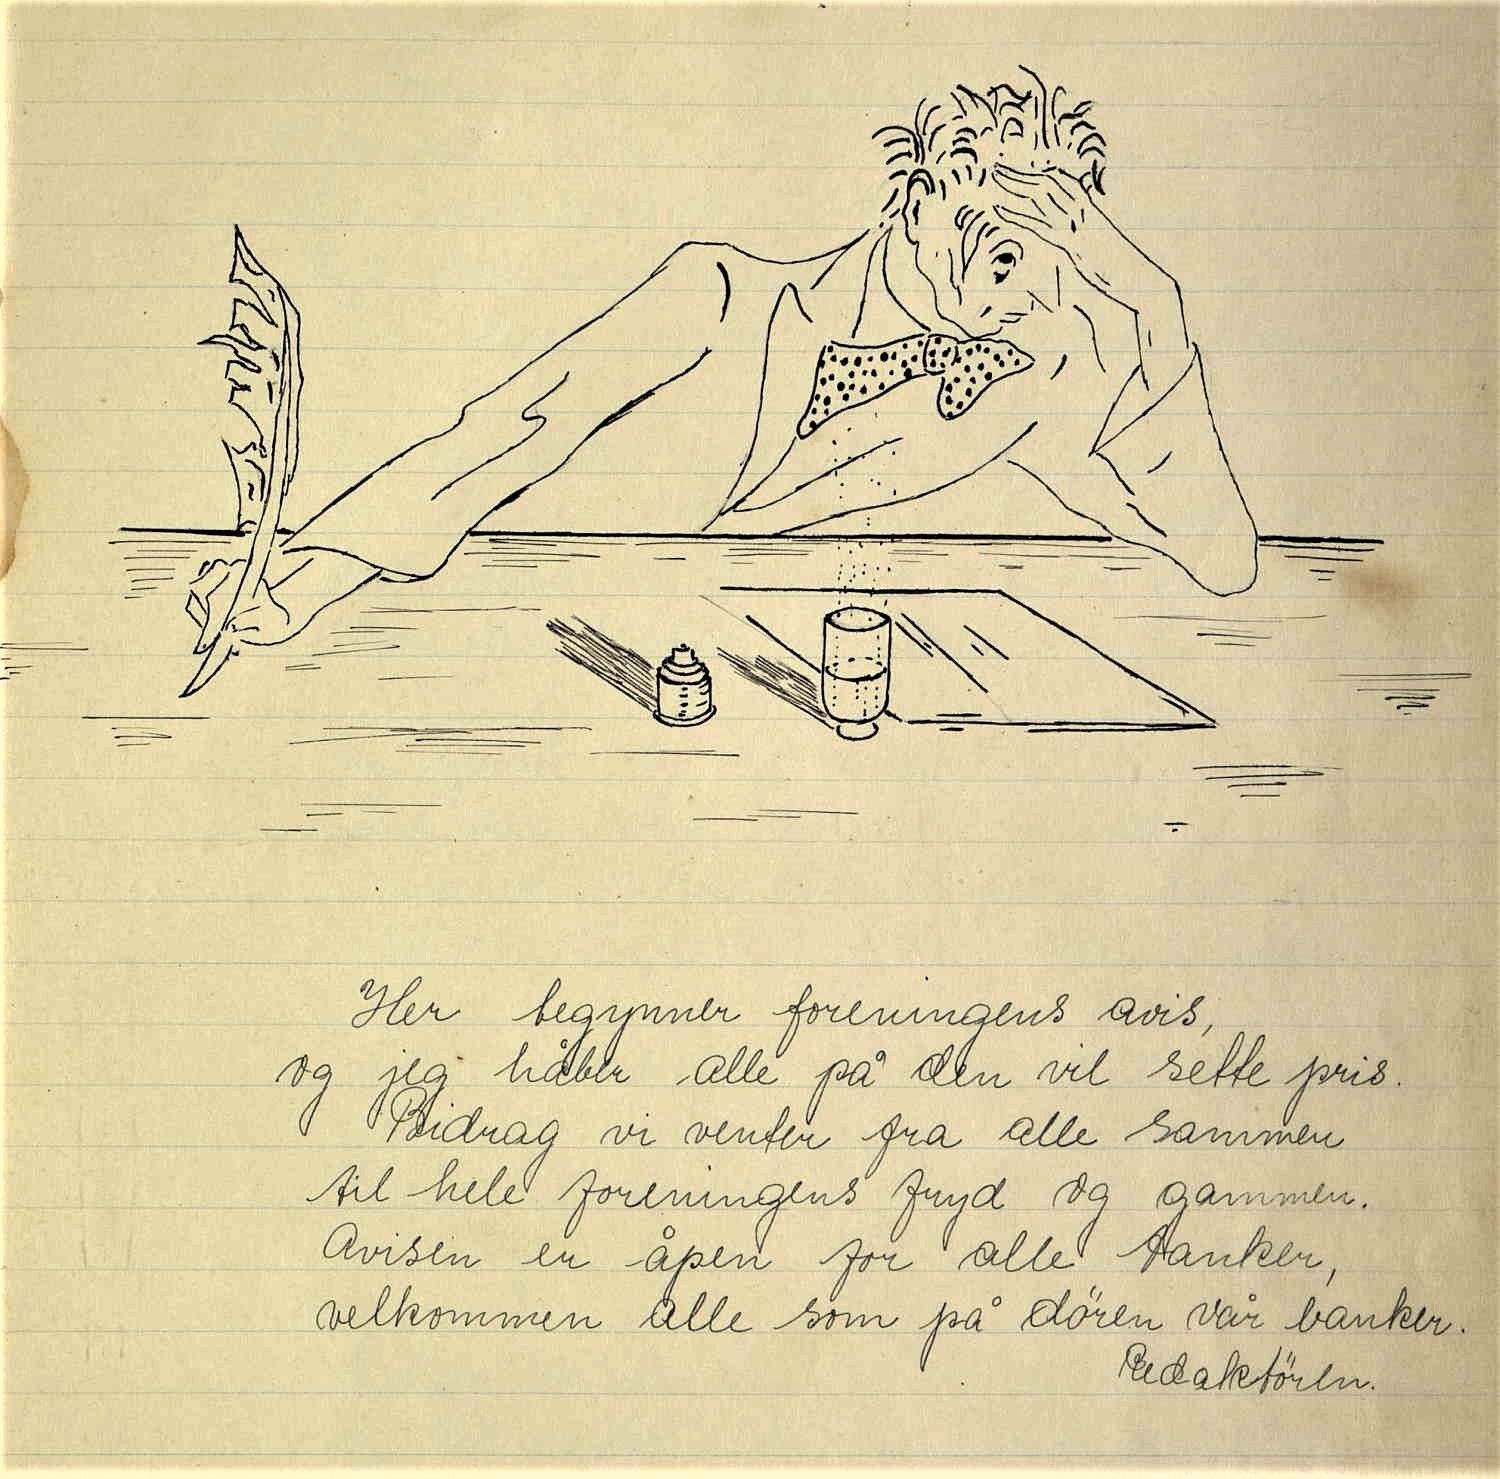 Her begynner foreningens avis,
og jeg håber alle på den vil sette pris.
Bidrag vi venter fra alle sammen
til hele foreningens fryd og gammen.
Avisen er åpen for alle tanker,
velkommen alle som på dören vår banker.
Redaktören.